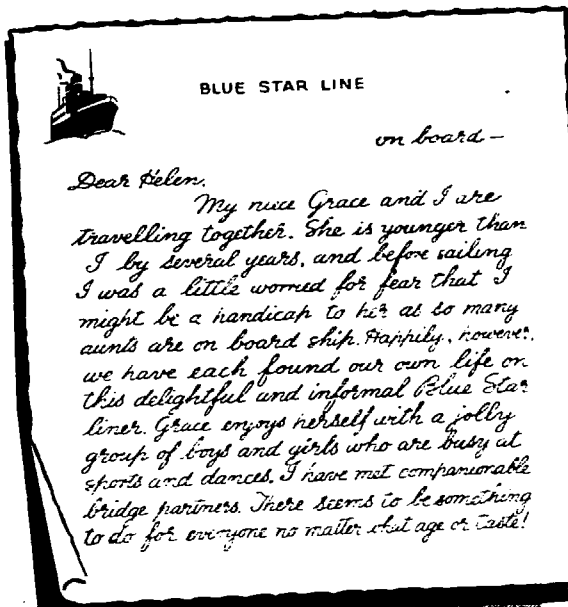 BLUE STAR LINE
on board —
Dear Helen.
My niece Grace and I are
travelling together. She is younger than
I by several years, and before sailing
I was a little worried for fear that I
might be a handicap to her as so many
aunts are on board ship. Happily, however,
we have each found our own life on
this delightful and informal Blue Star
liner. Grace enjoys herself with a jolly
group of boys and girls who are busy at
sports and dances. I have met companionable
bridge partners. There seems to be something
to do for everyone no matter what age or taste!